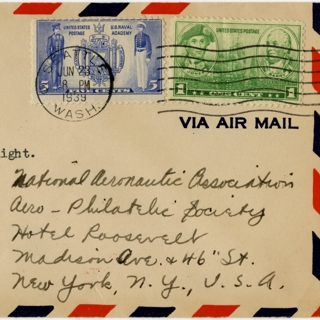 UNITED STATES POSTAGE
U.S. NAVAL ACADEMY
5 FIVE CENTS 5
UNITED STATES POSTAGE
1 1
SEATTLE
JUN 29
8 PM
1939
WASH.
VIA AIR MAIL
ight.
National Aeronautic Association
Aero - Philatelic Society
Hotel Roosevelt
Madison Ave. & 46" St.
New York, N. Y., U. S. A.